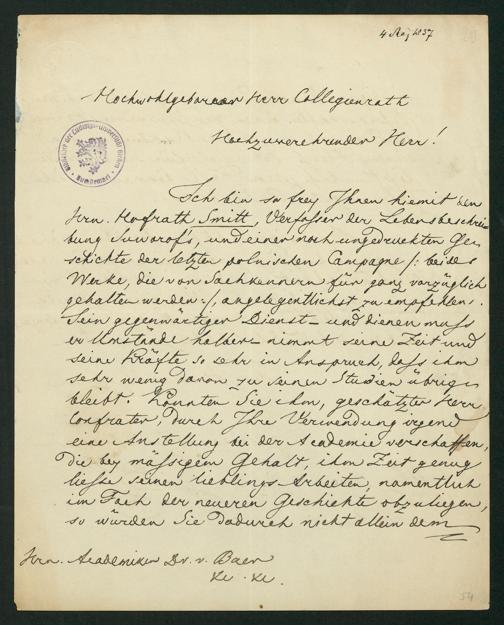 4 Aug 1837
Hochwohlgeborner Herr Collegienrath
Hochzuverehrender Herr!
Ich bin so frey Ihnen hiemit den
Hrn. Hofrath Smitt, Verfasser der Lebensbeschrei
bung Suworof's, und einer noch ungedruckten Ge-
schichte der letzten polnischen Campagne /: beides
Werke, die von Sachkennern für ganz vorzüglich
gehalten werden :/, angelegentlichst zu empfehlen.
Sein gegenwärtiger Dienst – und dienen muss
er Umstände halber – nimmt seine Zeit und
seine Kräfte so sehr in Anspruch, dass ihm
sehr wenig davon zu seinen Studien übrig
bleibt. Könnten Sie ihm, geschätzter Herr
Confrater, durch Ihre Verwendung irgend
eine Anstellung bei der Academie verschaffen,
die bey mässigem Gehalt, ihm Zeit genug
liesse seinen Lieblings-Arbeiten, namentlich
im Fach der neueren Geschichte obzuliegen,
so würden Sie dadurch nicht allein dem
Hrn. Academiker Dr. v. Baer